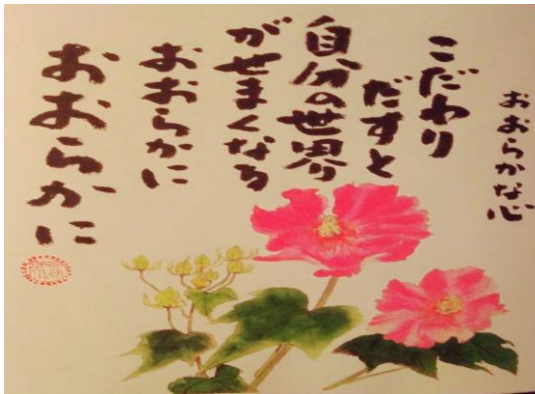 おおらかな心
こだわり
だすと
自分の世界
がせまくなる
おおらかに
おおらかに